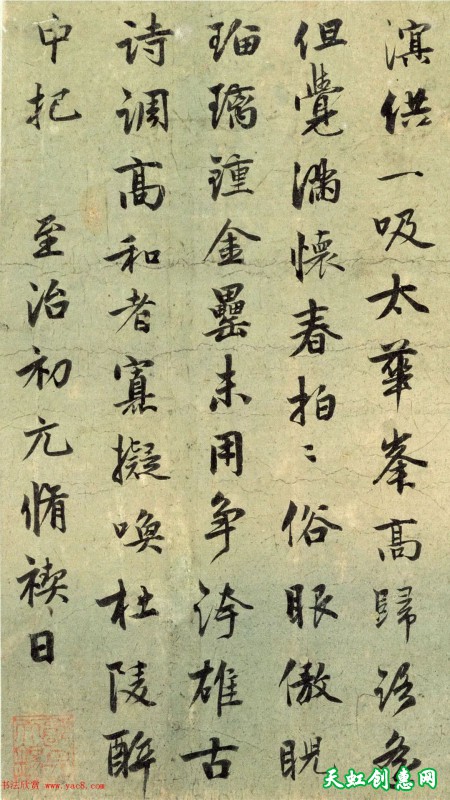 溟供一吸太華峯高歸語
但覺滿懷春拍〻俗眼傲睨
瑠璃鍾金罍未用爭誇雄古
詩調高和者寡擬喚杜陵醉
中把 至治初元脩禊日
书法欣赏 www.yac8.com
天虹创意网